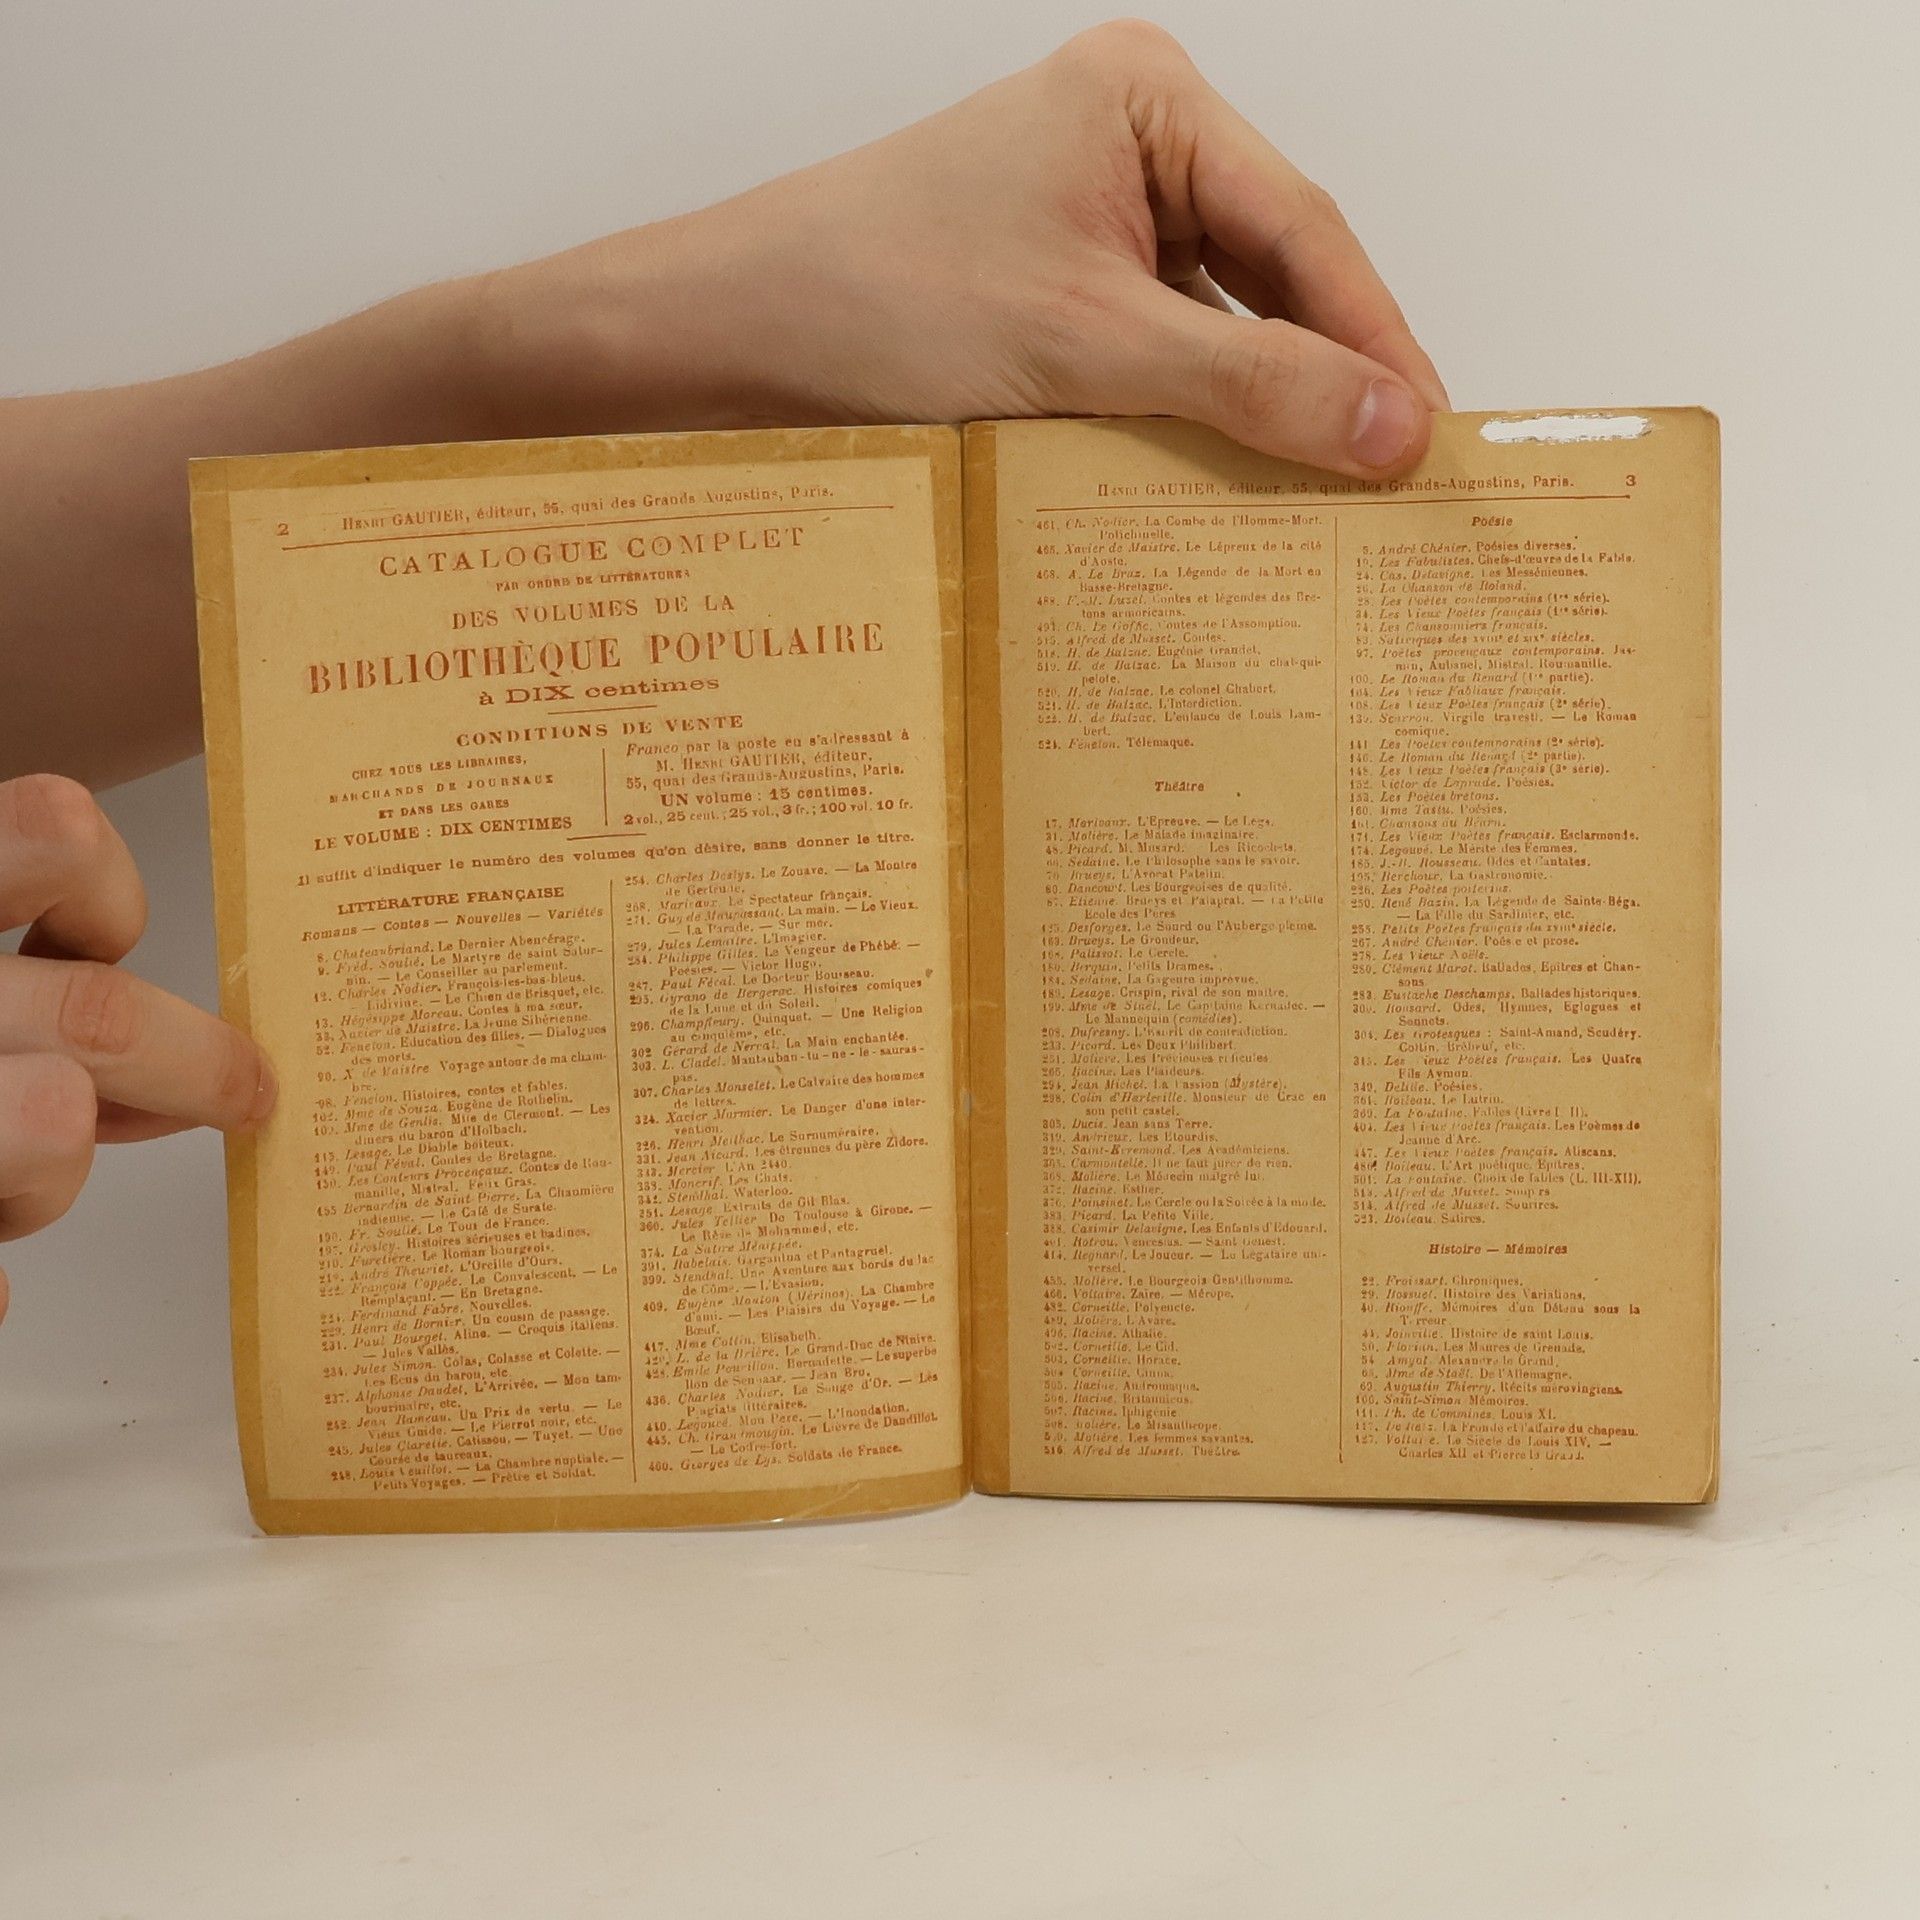 2 HENRI GAUTIER, éditeur, 55, quai des Grands Augustins, Paris.
CATALOGUE COMPLET
PAR ORDRE DE LITTÉRATURES
DES VOLUMES DE LA
BIBLIOTHÈQUE POPULAIRE
à DIX centimes
CONDITIONS DE VENTE
CHEZ TOUS LES LIBRAIRES,
MARCHANDS DE JOURNAUX
ET DANS LES GARES
LE VOLUME : DIX CENTIMES
Franco par la poste en s'adressant à
M. HENRI GAUTIER, éditeur,
55, quai des Grands-Augustins, Paris.
UN volume : 15 centimes.
2 vol., 25 cent.; 25 vol., 3 fr.; 100 vol. 10 fr.
Il suffit d'indiquer le numéro des volumes qu'on désire, sans donner le titre.
LITTÉRATURE FRANÇAISE
Romans — Contes — Nouvelles — Variétés
8. Chateaubriand. Le Dernier Abencérage.
9. Fréd. Soulié. Le Martyre de saint Satur-
nin. — Le Conseiller au parlement.
12. Charles Nodier. François-les-bas-bleus.
Lidivine. — Le Chien de Brisquet, etc.
13. Hégésippe Moreau. Contes à ma sœur.
33. Xavier de Maistre. La Jeune Sibérienne.
52. Fénelon. Education des filles. — Dialogues
des morts.
90. X. de Maistre Voyage autour de ma cham-
bre.
98. Fénelon. Histoires, contes et fables.
102. Mme de Souza. Eugène de Rothelin.
Mme de Genlis. Mlle de Clermont. — Les
dîners du baron d'Holbach.
115. Lesage. Le Diable boiteux.
149. Paul Féval. Contes de Bretagne.
150. Les Conteurs Provençaux. Contes de Rou-
manille, Mistral, Félix Gras.
155 Bernardin de Saint-Pierre. La Chaumière
indienne. — Le Café de Surate.
190. Fr. Soulié. Le Tour de France.
197. Grosley. Histoires sérieuses et badines.
210. Furetière. Le Roman bourgeois.
219. André Theuriet. L'Oreille d'Ours.
222. François Coppée. Le Convalescent. — Le
Remplaçant. — En Bretagne.
Ferdinand Fabre. Nouvelles.
229. Henri de Bornier. Un cousin de passage.
231. Paul Bourget. Aline. — Croquis italiens.
— Jules Vallès.
234. Jules Simon. Colas, Colasse et Colette. —
Les Ecus du baron, etc.
237. Alphonse Daudet. L'Arrivée. — Mon tam-
bourinaire, etc.
242. Jean Rameau. Un Prix de vertu. — Le
Vieux Guide. — Le Pierrot noir, etc.
245. Jules Claretie. Catissou. — Tuyet. — Une
Course de taureaux.
248. Louis Veuillot. — La Chambre nuptiale. —
Petits Voyages. — Prêtre et Soldat.
254. Charles Deslys. Le Zouave. — La Montre
de Gertrude.
268. Marivaux. Le Spectateur français.
271. Guy de Maupassant. La main. — Le Vieux.
— La Parade. — Sur mer.
279. Jules Lemaître. L'Imagier.
284. Philippe Gilles. Le Vengeur de Phébé. —
Poésies. — Victor Hugo.
287. Paul Féval. Le Docteur Bousseau.
295. Cyrano de Bergerac. Histoires comiques
de la Lune et du Soleil.
296. Champfleury. Quinquet. — Une Religion
au cinquième, etc.
302 Gérard de Nerval. La Main enchantée.
303. L. Cladel. Montauban-tu-ne-le-sauras-
pas.
307. Charles Monselet. Le Calvaire des hommes
de lettres.
324. Xavier Marmier. Le Danger d'une inter-
vention.
326. Henri Meilhac. Le Surnuméraire.
331. Jean Aicard. Les étrennes du père Zidore.
Mercier L'An 2440.
338. Moncrif. Les Chats.
342. Stendhal. Waterloo.
351. Lesage. Extraits de Gil Blas.
360. Jules Tellier De Toulouse à Girone. —
Le Rêve de Mohammed, etc.
374. La Satire Ménippée.
391. Rabelais. Gargantua et Pantagruel.
399. Stendhal. Une Aventure aux bords du lac
de Côme. — L'Evasion.
409. Eugène Mouton (Mérinos). La Chambre
d'ami. — Les Plaisirs du Voyage. — Le
Bœuf.
417. Mme Cottin. Elisabeth.
L. de la Brière. Le Grand-Duc de Ninive.
428. Emile Pouvillon. Bernadette. — Le superbe
lion de Sennaar. — Jean Bru.
436. Charles Nodier. Le Songe d'Or. — Les
Plagiats littéraires.
440. Legouvé. Mon Père. — L'Inondation.
445. Ch. Grandmougin. Le Lièvre de Dandillot.
— Le Coffre-fort.
460. Georges de Lys. Soldats de France.
HENRI GAUTIER, éditeur, 55, quai des Grands-Augustins, Paris. 3
461. Ch. Nodier. La Combe de l'Homme-Mort.
Polichinelle.
465. Xavier de Maistre. Le Lépreux de la cité
d'Aoste.
468. A. Le Braz. La Légende de la Mort en
Basse-Bretagne.
488. F.-M. Luzel. Contes et légendes des Bre-
tons armoricains.
Ch. Le Goffic. Contes de l'Assomption.
515. Alfred de Musset. Contes.
518. H. de Balzac. Eugénie Grandet.
519. H. de Balzac. La Maison du chat-qui-
pelote.
520. H. de Balzac. Le colonel Chabert.
521. H. de Balzac. L'Interdiction.
522. H. de Balzac. L'enfance de Louis Lam-
bert.
524. Fénelon. Télémaque.
Théâtre
17. Marivaux. L'Epreuve. — Le Legs.
31. Molière. Le Malade imaginaire.
48. Picard. M. Musard. Les Ricochets.
Sedaine. Le Philosophe sans le savoir.
Brueys. L'Avocat Patelin.
80. Dancourt. Les Bourgeoises de qualité.
87. Etienne. Brueys et Palaprat. — La Petite
Ecole des Pères
Desforges. Le Sourd ou l'Auberge pleine.
163. Brueys. Le Grondeur.
168. Palissot. Le Cercle.
180. Berquin. Petits Drames.
184. Sedaine. La Gageure imprévue.
189. Lesage. Crispin, rival de son maître.
199. Mme de Staël. Le Capitaine Kernadec. —
Le Mannequin (comédies).
208. Dufresny. L'Esprit de contradiction.
233. Picard. Les Deux Philibert.
251. Molière. Les Précieuses ridicules.
265. Racine. Les Plaideurs.
294. Jean Michel. La Passion (Mystère).
298. Colin d'Harleville. Monsieur de Crac en
son petit castel.
305. Ducis. Jean sans Terre.
319. Andrieux. Les Etourdis.
329. Saint-Evremond. Les Académiciens.
Carmontelle. Il ne faut jurer de rien.
368. Molière. Le Médecin malgré lui.
372. Racine. Esther.
376. Poinsinet. Le Cercle ou la Soirée à la mode.
383. Picard. La Petite Ville.
388. Casimir Delavigne. Les Enfants d'Edouard.
401. Rotrou. Venceslas. — Saint Genest.
414. Regnard. Le Joueur. — Le Légataire uni-
versel.
455. Molière. Le Bourgeois Gentilhomme.
466. Voltaire. Zaïre. — Mérope.
482. Corneille. Polyeucte.
489. Molière. L'Avare.
496. Racine. Athalie.
502. Corneille. Le Cid.
503. Corneille. Horace.
504 Corneille. Cinna.
505. Racine. Andromaque.
506. Racine. Britannicus.
507. Racine. Iphigénie
508. Molière. Le Misanthrope.
Molière. Les femmes savantes.
516. Alfred de Musset. Théâtre.
Poésie
5. André Chénier. Poésies diverses.
19. Les Fabulistes. Chefs-d'œuvre de la Fable.
24. Cas. Delavigne. Les Messéniennes.
26. La Chanson de Roland.
28. Les Poètes contemporains (1re série).
34. Les Vieux Poètes français (1re série).
74. Les Chansonniers français.
83. Satiriques des XVIIIe et XIXe siècles.
97. Poètes provençaux contemporains. Jas-
min, Aubanel, Mistral. Roumanille.
100. Le Roman du Renard (1re partie).
104. Les Vieux Fabliaux français.
108. Les Vieux Poètes français (2e série).
Scarron. Virgile travesti. — Le Roman
comique.
141 Les Poètes contemporains (2e série).
146. Le Roman du Renard (2e partie).
148. Les Vieux Poètes français (3e série).
152. Victor de Laprade. Poésies.
153. Les Poètes bretons.
160. Mme Tastu. Poésies.
161. Chansons du Béarn.
171. Les Vieux Poètes français. Esclarmonde.
174. Legouvé. Le Mérite des Femmes.
185. J.-B. Rousseau. Odes et Cantates.
195. Berchoux. La Gastronomie.
226. Les Poètes poitevins.
250. René Bazin. La Légende de Sainte-Béga.
— La Fille du Sardinier, etc.
255. Petits Poètes français du XVIIIe siècle.
267. André Chénier. Poésie et prose.
278. Les Vieux Noëls.
280. Clément Marot. Ballades, Epîtres et Chan-
sons.
283. Eustache Deschamps. Ballades historiques.
300. Ronsard. Odes, Hymnes, Eglogues et
Sonnets.
304. Les Grotesques : Saint-Amand, Scudéry.
Cottin. Brébeuf, etc.
315. Les Vieux Poètes français. Les Quatre
Fils Aymon.
349. Delille. Poésies.
361. Boileau. Le Lutrin.
369. La Fontaine. Fables (Livre I. II).
404. Les Vieux Poètes français. Les Poèmes de
Jeanne d'Arc.
447. Les Vieux Poètes français. Aliscans.
486. Boileau. L'Art poétique. Epîtres.
501. La Fontaine. Choix de fables (L. III-XII).
513. Alfred de Musset.
514. Alfred de Musset. Sourires.
523. Boileau. Satires.
Histoire — Mémoires
22. Froissart. Chroniques.
29. Bossuet. Histoire des Variations.
40. Riouffe. Mémoires d'un Détenu sous la
Terreur
44. Joinville. Histoire de saint Louis.
50. Florian. Les Maures de Grenade.
54 Amyot. Alexandre le Grand.
Mme de Staël. De l'Allemagne.
69. Augustin Thierry. Récits mérovingiens.
106. Saint-Simon Mémoires.
111. Ph. de Commines. Louis XI.
117. De Retz. La Fronde et l'affaire du chapeau.
127. Voltaire. Le Siècle de Louis XIV. —
Charles XII et Pierre le Grand.